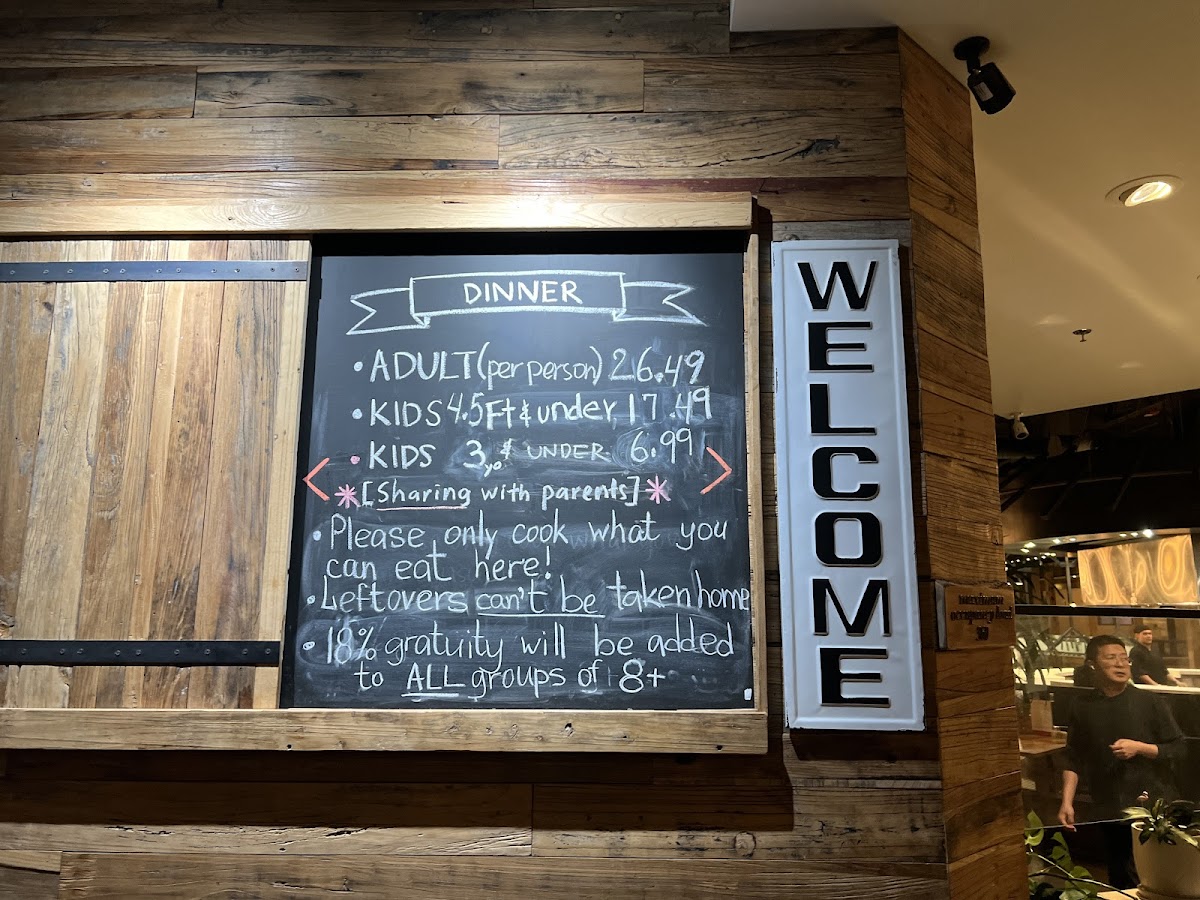 DINNER
• ADULT (per person) 26.49
• KIDS 4.5Ft & under, 17.49
• KIDS 3yo & UNDER 6.99
*[Sharing with parents]*
• Please only cook what you
can eat here!
• Leftovers can't be taken home
• 18% gratuity will be added
to ALL groups of 8+
WELCOME
maximum
occupancy limit